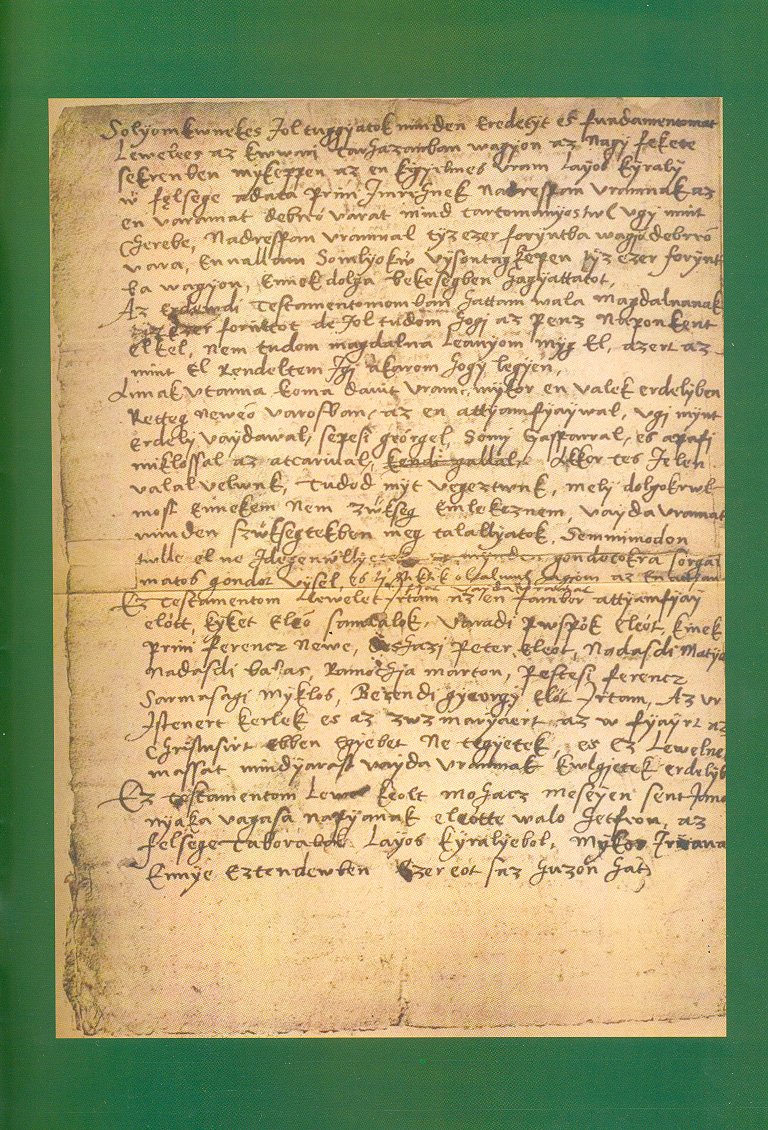 Solyomkwnekes Jol tuggyatok minden Eredetyt es fundamentomat
Lewelees az knwari Tarhazamban wagyon az Nagi fekete
sekrenben mykeppen az en kgyelmes vram Layos kyraly
w felsege adata Prini Jmrehnek Nadrespan vramnak az
en varamat debreo varat mind tartomanyostwl vgy mint
Cherebe, Nadrespan vramnal tyz ezer foryntba wagio debreo
vara, Ennallam Somlyokw vysontagkepen tyz ezer forynt
ba wagyon, Ennek dolga bekesegben hagyattatot,
Az Testamentomomban hattam wala Magdalnanak
ezer forintot de Jol tudom hogi az penz Naponkent
elkel, Nem tudom magdalna Leanyom myg El, azert az
mint El Rendeltem Jgi akarom hogy legyen,
Annak vtanna koma dauit vram, mykor en valek erdelyben
Retteg neweo varosban, az en attyamfyaywal, vgi mynt
Erdely vaydawal, sepesi georgel, Somi Gasparral, es apafi
miklossal az atcarinal, kendi gallal, Akkor tes Jelen
valal velwnk, Tudod myt vegeztwnk, mely dolgokrwl
most ennekem Nem zwkseg Emlekeznem, vayda vramat
minden szwksegtekben meg talallyatok, Semmimodon
tulle el ne Jdegenwllyetek gondotokra sorgal
matos gondot vysel es
Ez Testamentom Lewelet Jrtam az en Jambor attyamfyay
elott, kyket eleo samlalok, Varadi pwspok eleot, kinek
Prini ferencz Newe, Peter eleot, Nadasdi Matya
Nadasdi balas, Ramochja marton, Pestesi ferencz
Sarmasagi Myklos, Becendi gyeorgy Elot Jrtam, Az vr
Jstenert kerlek es az zwz maryaert az w fyayrt az
Christusert ebben egyebet Ne tegyetek, es Ez Lewelnek
massat mindyarast vayda vramnak kwlgietek erdelyb
Ez Testamentom Lewel keolt mohacz meseyen sent Jano
nyaka vagasa napyanak eleotte walo hetfvon, az
felsege Taborabol Layos kyralyebol, Mykor Jrnana
Ennye Eztendewben Ezer eot saz huzon hat